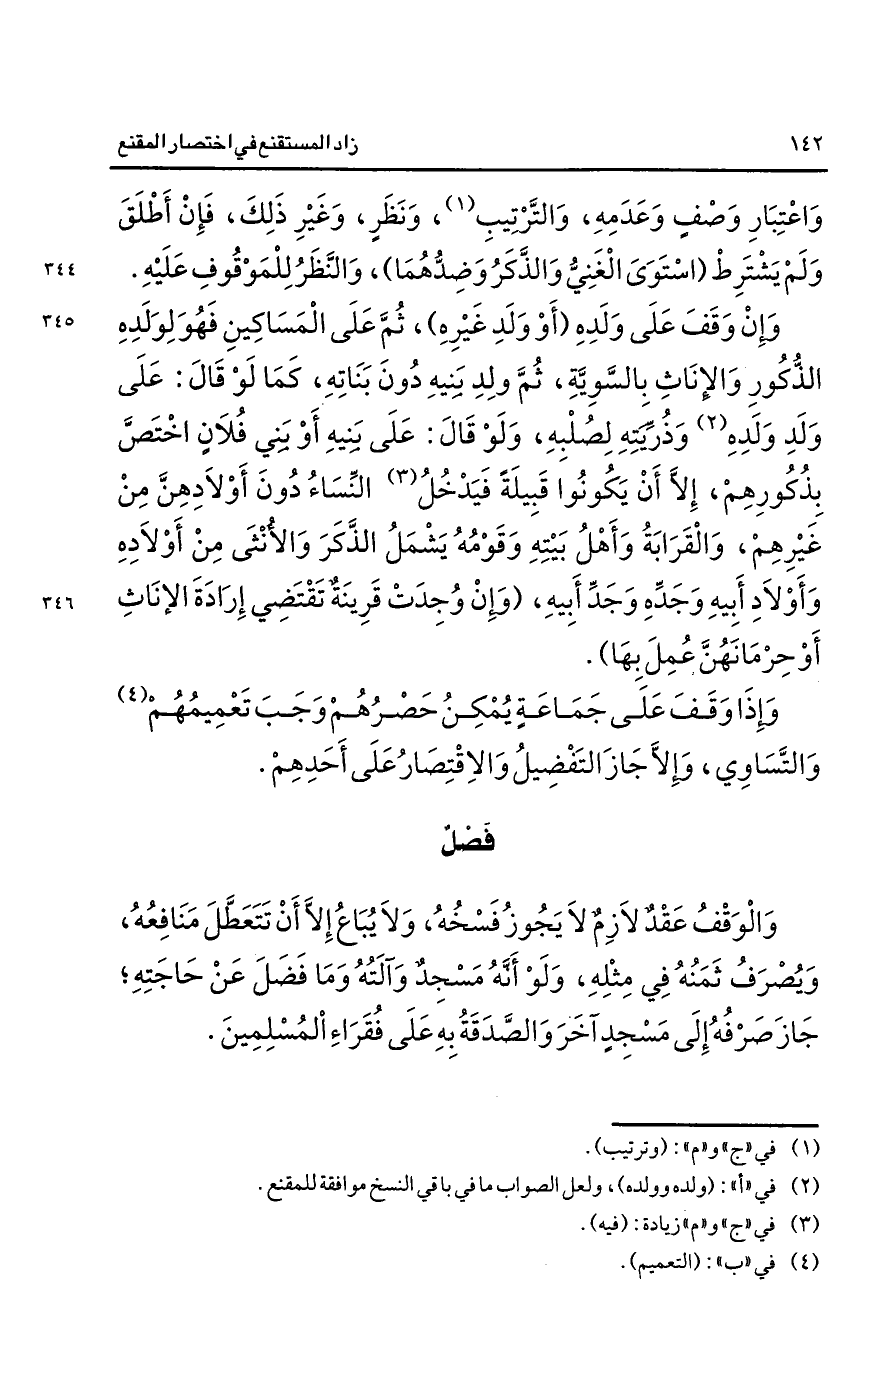 ١٤٢ زاد المستقنع في اختصار المقنع
وَاعْتِبَارِ وَصْفٍ وَعَدَمِهِ، وَالتَّرْتِيبِ(١)، وَنَظَرٍ، وَغَيْرِ ذَلِكَ، فَإِنْ أَطْلَقَ
وَلَمْ يَشْتَرِطْ (اسْتَوَى الْغَنِيُّ وَالذَّكَرُ وَضِدُّهُمَا)، وَالنَّظَرُ لِلْمَوْقُوفِ عَلَيْهِ. ٣٤٤
وَإِنْ وَقَفَ عَلَى وَلَدِهِ (أَوْ وَلَدِ غَيْرِهِ)، ثُمَّ عَلَى الْمَسَاكِينِ فَهُوَ لِوَلَدِهِ ٣٤٥
الذُّكُورِ وَالإِنَاثِ بِالسَّوِيَّةِ، ثُمَّ ولِدِ بَنِيهِ دُونَ بَنَاتِهِ، كَمَا لَوْ قَالَ: عَلَى
وَلَدِ وَلَدِهِ(٢) وَذُرِّيَّتِهِ لِصُلْبِهِ، وَلَوْ قَالَ: عَلَى بَنِيهِ أَوْ بَنِي فُلَانٍ اخْتَصَّ
بِذُكُورِهِمْ، إِلاَّ أَنْ يَكُونُوا قَبِيلَةً فَيَدْخُلُ(٣) النِّسَاءُ دُونَ أَوْلاَدِهِنَّ مِنْ
غَيْرِهِمْ، وَالْقَرَابَةُ وَأَهْلُ بَيْتِهِ وَقَوْمُهُ يَشْمَلُ الذَّكَرَ وَالأُنْثَى مِنْ أَوْلاَدِهِ
وَأَوْلاَدِ أَبِيهِ وَجَدِّهِ وَجَدِّ أَبِيهِ، (وَإِنْ وُجِدَتْ قَرِينَةٌ تَقْتَضِي إِرَادَةَ الإِنَاثِ ٣٤٦
أَوْ حِرْمَانَهُنَّ عُمِلَ بِهَا).
وَإِذَا وَقَـفَ عَلَـى جَمَـاعَـةٍ يُمْكِـنُ حَصْـرُهُـمْ وَجَـبَ تَعْمِيمُهُـمْ(٤)
وَالتَّسَاوِي، وَإِلاَّ جَازَ التَّفْضِيلُ وَالاِقْتِصَارُ عَلَى أَحَدِهِمْ.
فَصْلٌ
وَالْوَقْفُ عَقْدٌ لاَزِمٌ لاَ يَجُوزُ فَسْخُهُ، وَلاَ يُبَاعُ إِلاَّ أَنْ تَتَعَطَّلَ مَنَافِعُهُ،
وَيُصْرَفُ ثَمَنُهُ فِي مِثْلِهِ، وَلَوْ أَنَّهُ مَسْجِدٌ وَآلَتُهُ وَمَا فَضَلَ عَنْ حَاجَتِهِ؛
جَازَ صَرْفُهُ إِلَى مَسْجِدٍ آخَرَ وَالصَّدَقَةُ بِهِ عَلَى فُقَرَاءِ الْمُسْلِمِينَ.
(١) في «ج» و«م»: (وترتيب).
(٢) في «أ»: (ولده وولده)، ولعل الصواب ما في باقي النسخ موافقة للمقنع.
(٣) في «ج» و«م» زيادة: (فيه).
(٤) في «ب»: (التعميم).